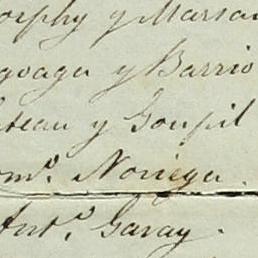 orphy y Marsan
goaga y Barrio
teau y Goupil
omº. Noriega.
Antº. Garay.